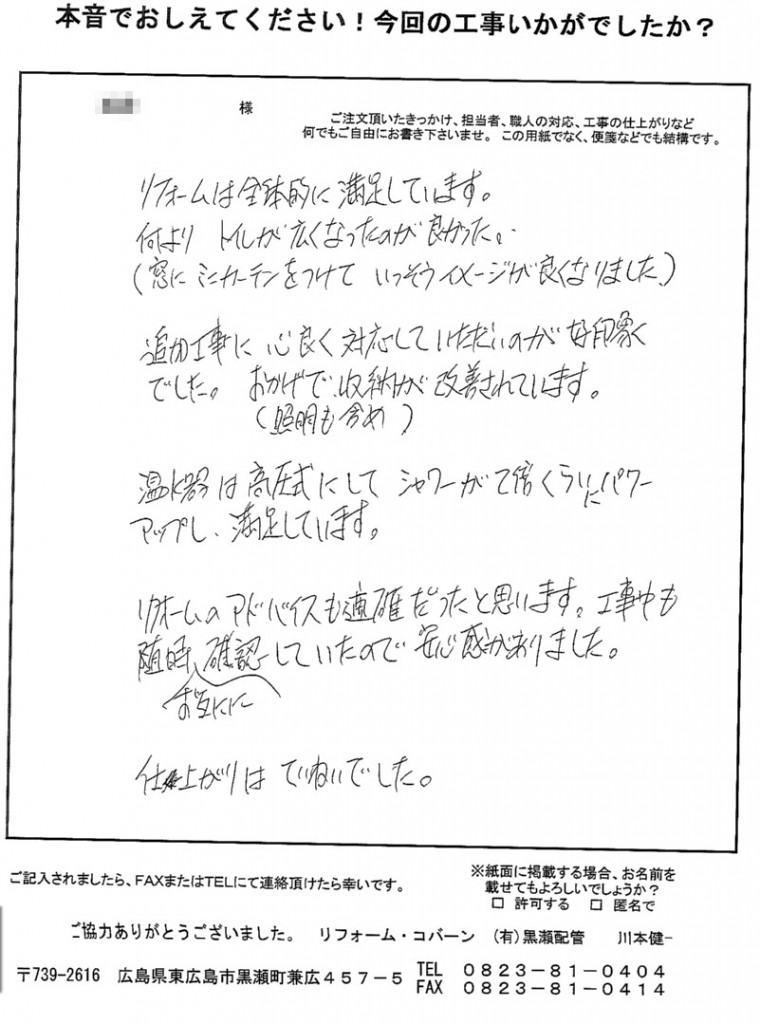 本音でおしえてください！今回の工事いかがでしたか？
様
ご注文頂いたきっかけ、担当者、職人の対応、工事の仕上がりなど
何でもご自由にお書き下さいませ。この用紙でなく、便箋などでも結構です。
リフォームは全体的に満足しています。
何より トイレが広くなったのが良かった。
(窓に ミニカーテンをつけて いっそうイメージが良くなりました。)
追加工事に 心良く対応していただいのが 好印象
でした。 おかげで、収納が 改善されています。
(照明も含め)
温水器は高圧式にして シャワーが 倍くらいにパワー
アップし、満足しています。
リフォームのアドバイスも適確だったと思います。工事中も
随時、確認していたので 安心感がありました。
お互いに
仕上がりは ていねいでした。
ご記入されましたら、FAXまたはTELにて連絡頂けたら幸いです。
※紙面に掲載する場合、お名前を
載せてもよろしいでしょうか？
□ 許可する □ 匿名で
ご協力ありがとうございました。 リフォーム・コバーン (有)黒瀬配管 川本健一
〒739-2616 広島県東広島市黒瀬町兼広４５７－５
TEL ０８２３－８１－０４０４
FAX ０８２３－８１－０４１４